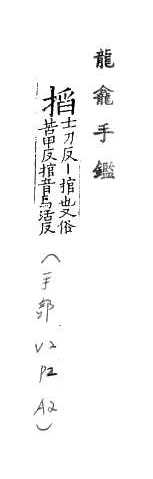 龍龕手鑑
搯士刀反丨捾也又俗
苦甲反捾音烏活反
(手部
V2
P2
A2)